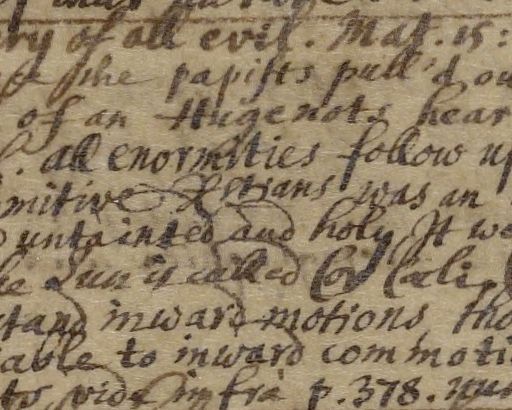 ry of all evil. Mat. 15:
the papists pull'd ou
of an Hugenots hear
. all enormities follow up
mitive Xstians was an
untainted and holy. It we
he Sun is called Cor Cæli.
stand inward motions tho
able to inward commoti
to vide infra p. 378.